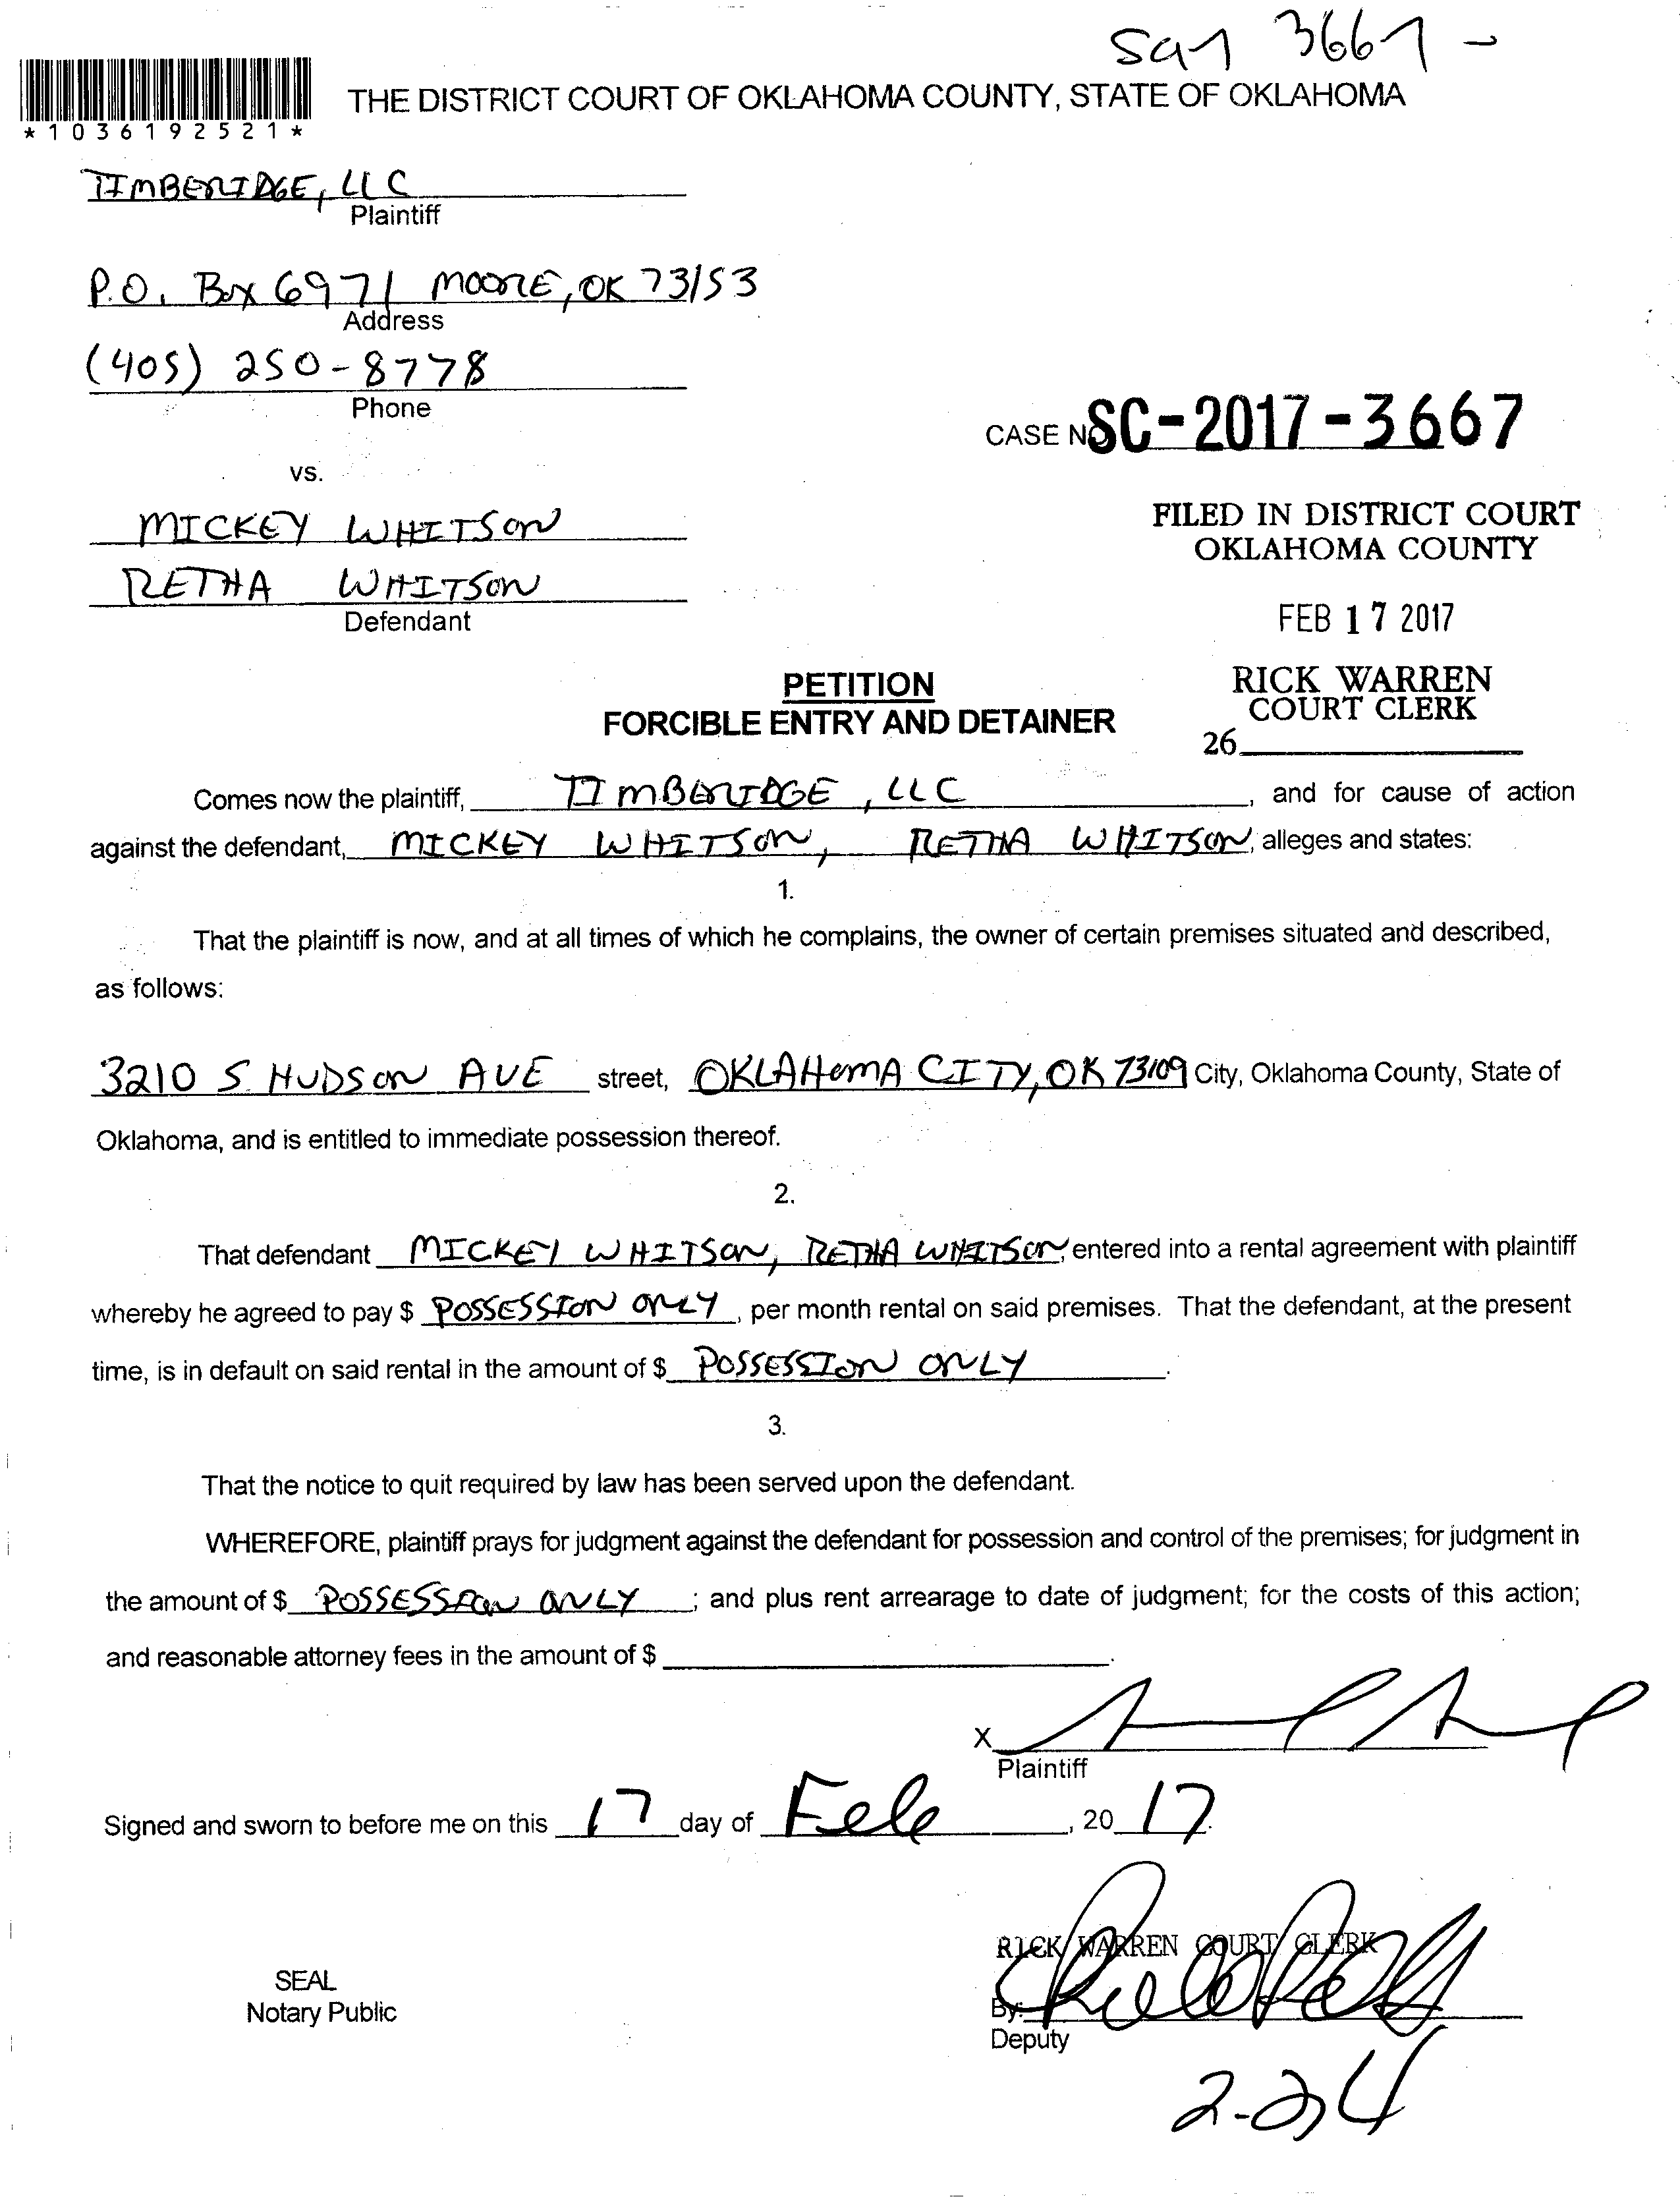 3667-
THE DISTRICT COURT OF OKLAHOMA COUNTY, STATE OF OKLAHOMA
*1036192521*
TIMBERIDGE, LLC
Plaintiff
P.O. Box 6971 MOORE, OK 73153
Address
(405) 250-8778
Phone
CASE NO SC-2017-3667
vs.
MICKEY WHITSON
RETHA WHITSON
Defendant
FILED IN DISTRICT COURT
OKLAHOMA COUNTY
FEB 17 2017
RICK WARREN
COURT CLERK
26
PETITION
FORCIBLE ENTRY AND DETAINER
Comes now the plaintiff, TIMBERIDGE, LLC, and for cause of action
against the defendant, MICKEY WHITSON, RETHA WHITSON, alleges and states:
1.
That the plaintiff is now, and at all times of which he complains, the owner of certain premises situated and described,
as follows:
3210 S HUDSON AVE street, OKLAHOMA CITY, OK 73109 City, Oklahoma County, State of
Oklahoma, and is entitled to immediate possession thereof.
2.
That defendant MICKEY WHITSON, RETHA WHITSON, entered into a rental agreement with plaintiff
whereby he agreed to pay $ POSSESSION ONLY, per month rental on said premises. That the defendant, at the present
time, is in default on said rental in the amount of $ POSSESSION ONLY.
3.
That the notice to quit required by law has been served upon the defendant.
WHEREFORE, plaintiff prays for judgment against the defendant for possession and control of the premises; for judgment in
the amount of $ POSSESSION ONLY; and plus rent arrearage to date of judgment; for the costs of this action;
and reasonable attorney fees in the amount of $ .
X
Plaintiff
Signed and sworn to before me on this 17 day of Feb, 20 17.
RICK WARREN COURT CLERK
SEAL
Notary Public
By:
Deputy